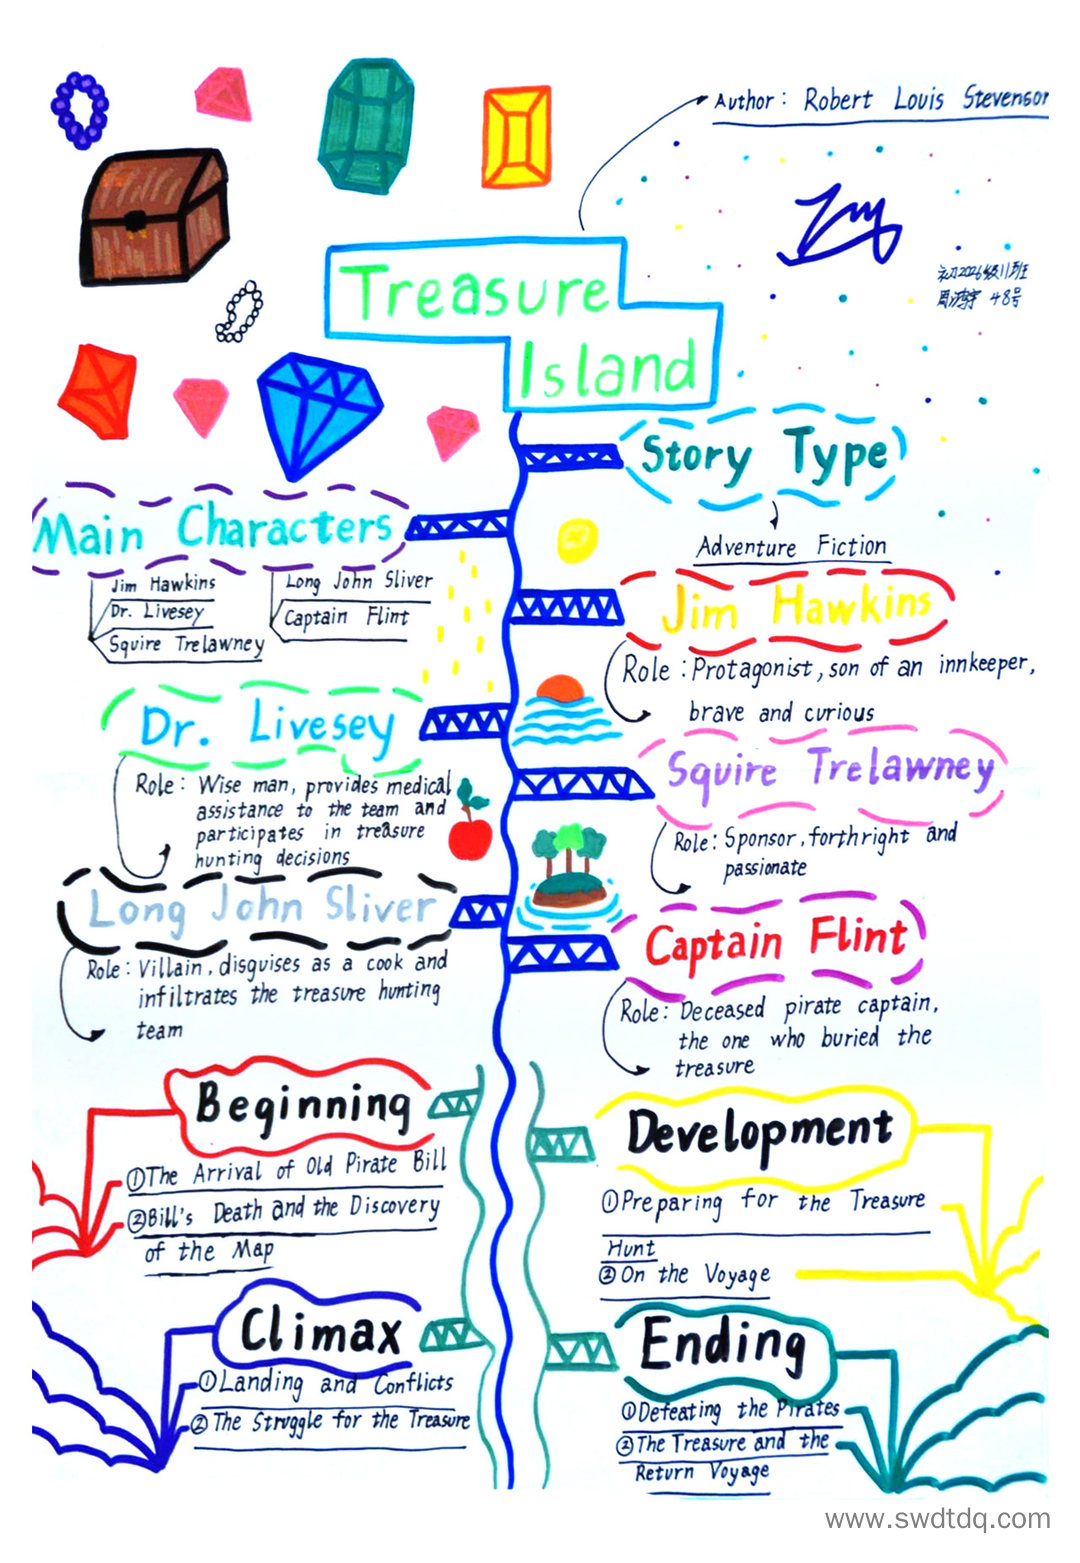 Author: Robert Louis Stevenson
初2026级11班
48号
Treasure
Island
Story Type
Adventure Fiction
Main Characters
Jim Hawkins
Dr. Livesey
Squire Trelawney
Long John Sliver
Captain Flint
Jim Hawkins
Role: Protagonist, son of an innkeeper,
brave and curious
Dr. Livesey
Role: Wise man, provides medical
assistance to the team and
participates in treasure
hunting decisions
Squire Trelawney
Role: Sponsor, forthright and
passionate
Long John Sliver
Role: Villain, disguises as a cook and
infiltrates the treasure hunting
team
Captain Flint
Role: Deceased pirate captain,
the one who buried the
treasure
Beginning
①The Arrival of Old Pirate Bill
②Bill's Death and the Discovery
of the Map
Development
①Preparing for the Treasure
Hunt
②On the Voyage
Climax
①Landing and Conflicts
②The Struggle for the Treasure
Ending
①Defeating the Pirates
②The Treasure and the
Return Voyage
www.swdtdq.com